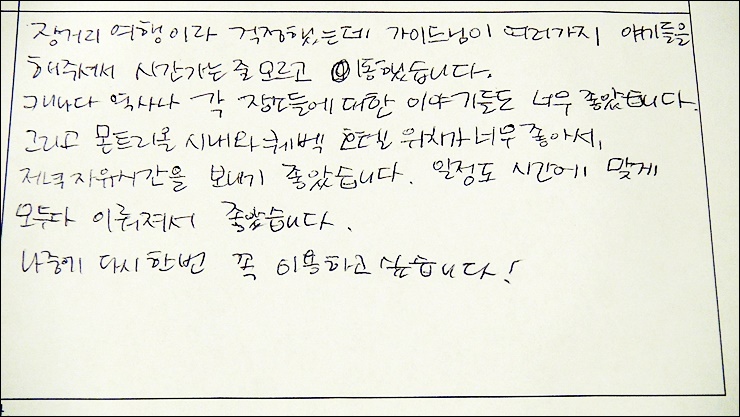 장거리 여행이라 걱정했는데 가이드님이 여러가지 얘기들을
해주셔서 시간가는줄 모르고 이동했습니다.
캐나다 역사나 각 장소들에 대한 이야기들도 너무 좋았습니다.
그리고 몬트리올 시내와 퀘벡 호텔 위치가 너무 좋아서,
저녁자유시간을 보내기 좋았습니다. 일정도 시간에 맞게
모두다 이뤄져서 좋았습니다.
나중에 다시한번 꼭 이용하고 싶습니다!